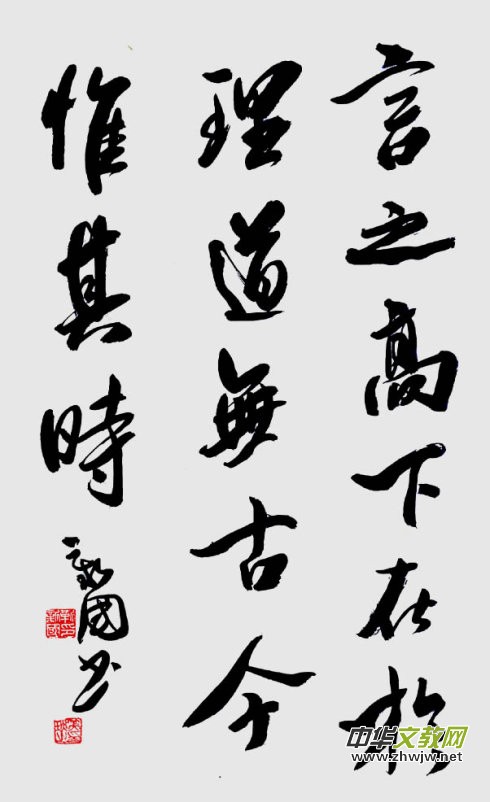 言之高下在於
理道無古今
惟其時
國书
中华文教网
www.zhwjw.net